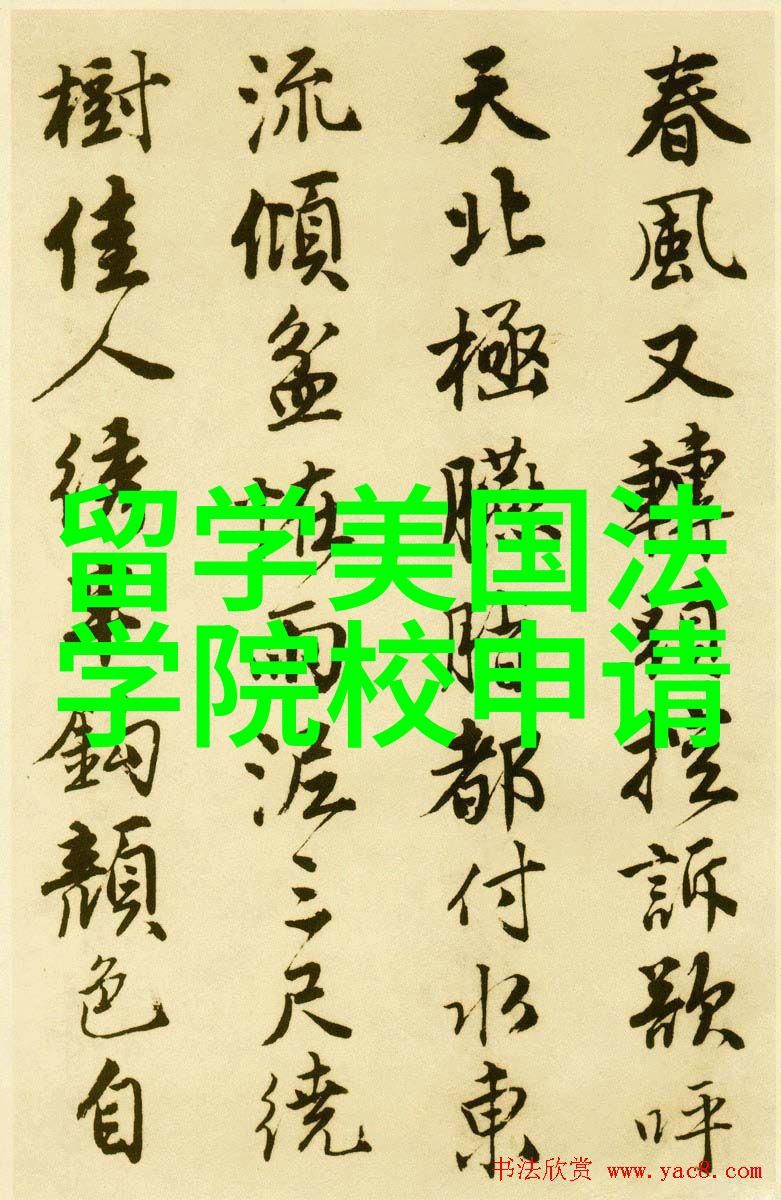 春風又轉控訴歌呼
天北極都付水東
流傾盆怪雨泥三尺繞
樹佳人繡鉤顏色自
留学美国法
学院校申请
书法欣赏 www.yac8.com